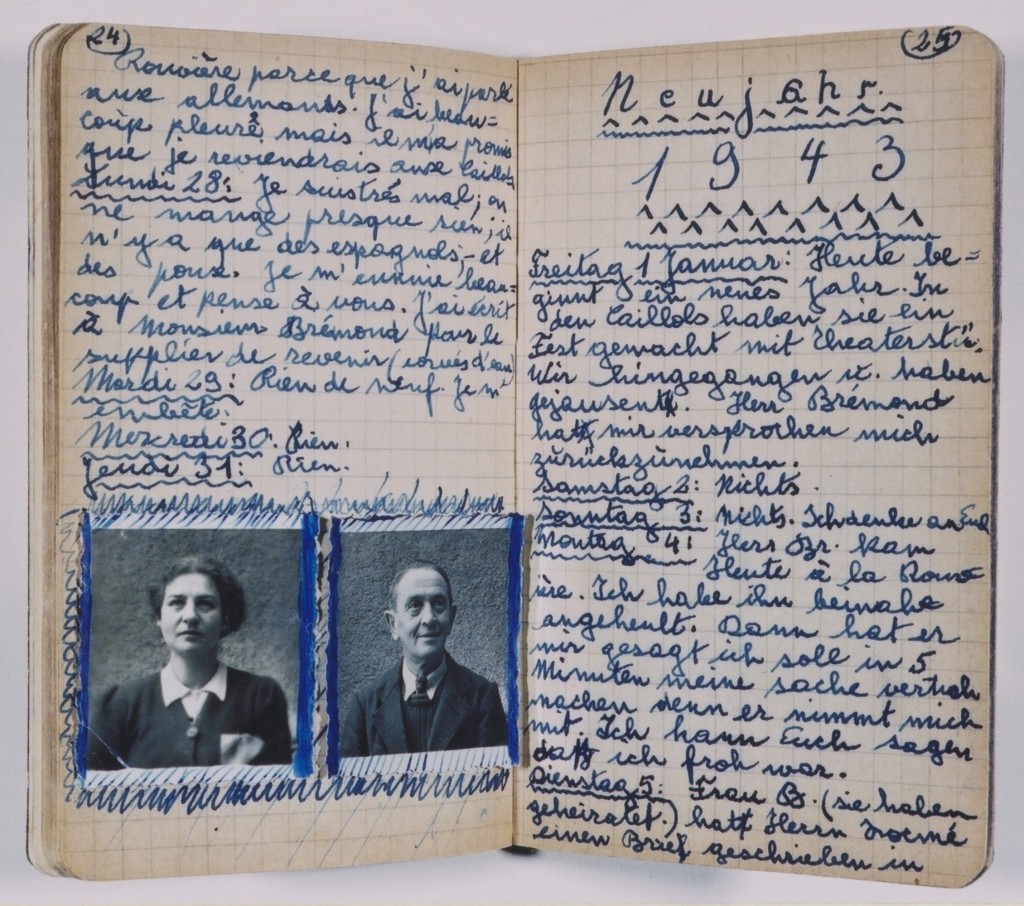 24
Rouvière parce que j'ai parlé
aux allemands. J'ai beau=
coup pleuré mais il m'a promis
que je reviendrais aux Caillols
Lundi 28: Je suis trés mal; on
ne mange presque rien; il
n'y a que des espagnols, et
des poux. Je m'ennuie beau=
coup et pense à vous. J'ai écrit
à Monsieur Brémond pour le
supplier de revenir (corvés d'eau)
Mardi 29: Rien de neuf. Je m'
embète.
Mercredi 30: Rien.
Jeudi 31: Rien.
25
Neujahr.
1943
Freitag 1 Januar: Heute be=
ginnt ein neues Jahr. In
den Caillols haben sie ein
Fest gemacht mit Theaterstü..
Wir hingegangen u. haben
gejausent. Herr Brémond
hat mir versprochen mich
zurückzunehmen.
Samstag 2: Nichts.
Sonntag 3: Nichts. Ich denke an Euch
Montag 4: Herr Br. kam
Heute à la Rouv=
ière. Ich habe ihn beinahe
angeheult. Dann hat er
mir gesagt ich soll in 5
Minuten meine sache
machen denn er nimmt mich
mit. Ich kann Euch sagen
daß ich froh war.
Dienstag 5: Frau B. (sie haben
geheiratet.) hat Herrn
einen Brief geschrieben in